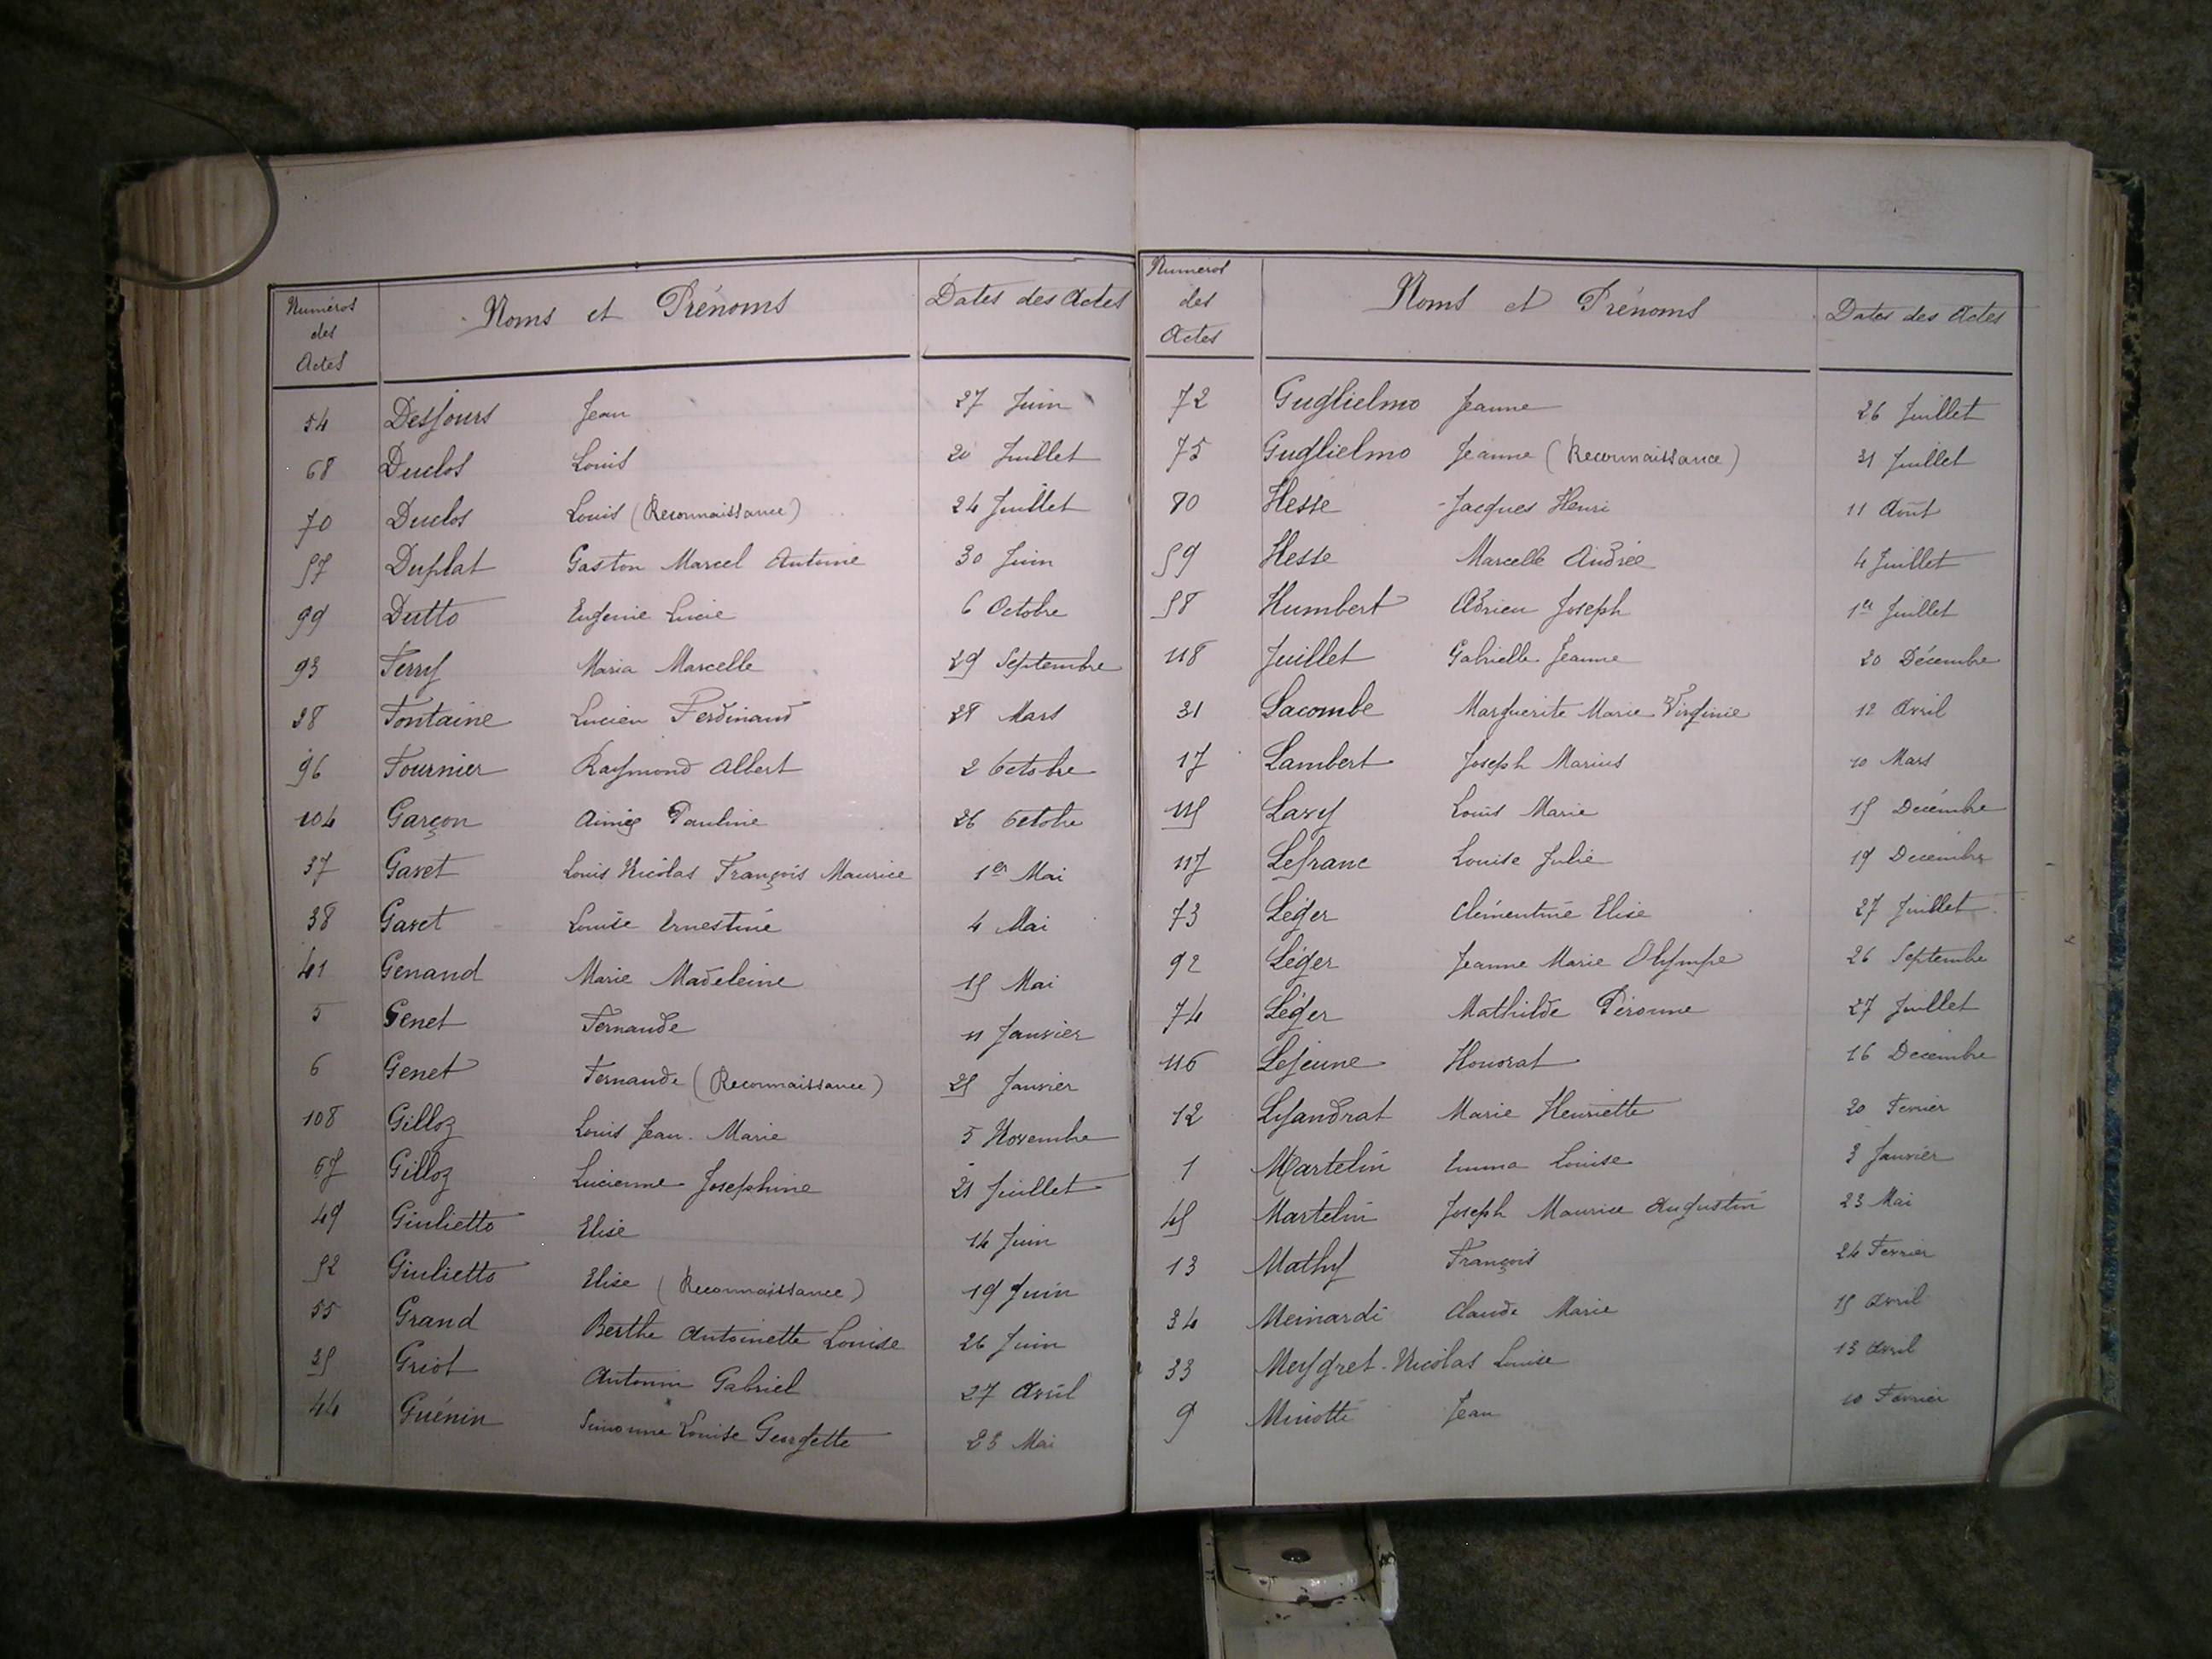 Numéros
des
Actes
Noms et Prénoms
Dates des Actes
54 Desjours Jean 27 Juin
68 Duclos Louis 20 Juillet
70 Duclos Louis (Reconnaissance) 24 Juillet
57 Duplat Gaston Marcel Antoine 30 Juin
99 Dutto Eugenie Lucie 6 Octobre
93 Ferry Maria Marcelle 29 Septembre
28 Fontaine Lucien Ferdinand 28 Mars
96 Fournier Raymond Albert 2 Octobre
104 Garçon Aimée Pauline 26 Octobre
37 Gavet Louis Nicolas François Maurice 1er Mai
38 Gavet Louise Ernestine 4 Mai
41 Genand Marie Madeleine 15 Mai
5 Genet Fernande 11 Janvier
6 Genet Fernande (Reconnaissance) 25 Janvier
108 Gilloz Louis Jean Marie 5 Novembre
67 Gilloz Lucienne Josephine 21 Juillet
49 Giulietto Elise 14 Juin
52 Giulietto Elise (Reconnaissance) 19 Juin
55 Grand Berthe Antoinette Louise 26 Juin
35 Griot Antonin Gabriel 27 Avril
44 Guénin Simonne Louise Georgette 23 Mai
Numéros
des
Actes
Noms et Prénoms
Dates des Actes
72 Guglielmo Jeanne 26 Juillet
75 Guglielmo Jeanne (Reconnaissance) 31 Juillet
80 Hesse Jacques Henri 11 Août
59 Hesse Marcelle Andrée 4 Juillet
58 Humbert Adrien Joseph 1er Juillet
118 Juillet Gabrielle Jeanne 20 Décembre
31 Lacombe Marguerite Marie Virginie 12 Avril
17 Lambert Joseph Marius 10 Mars
115 Lavy Louis Marie 15 Decémbre
117 Lefranc Louise Julie 19 Decembre
73 Léger Clémentine Elise 27 Juillet
92 Léger Jeanne Marie Olympe 26 Septembre
74 Léger Mathilde Péronne 27 Juillet
116 Lejeune Honorat 16 Decembre
12 Lyandrat Marie Henriette 20 Fevrier
1 Martelin Emma Louise 3 Janvier
45 Martelin Joseph Maurice Augustin 23 Mai
13 Mathy François 24 Fevrier
34 Meinardi Claude Marie 15 Avril
33 Meygret-Nicolas Louise 13 Avril
9 Miniotti Jean 10 Fevrier